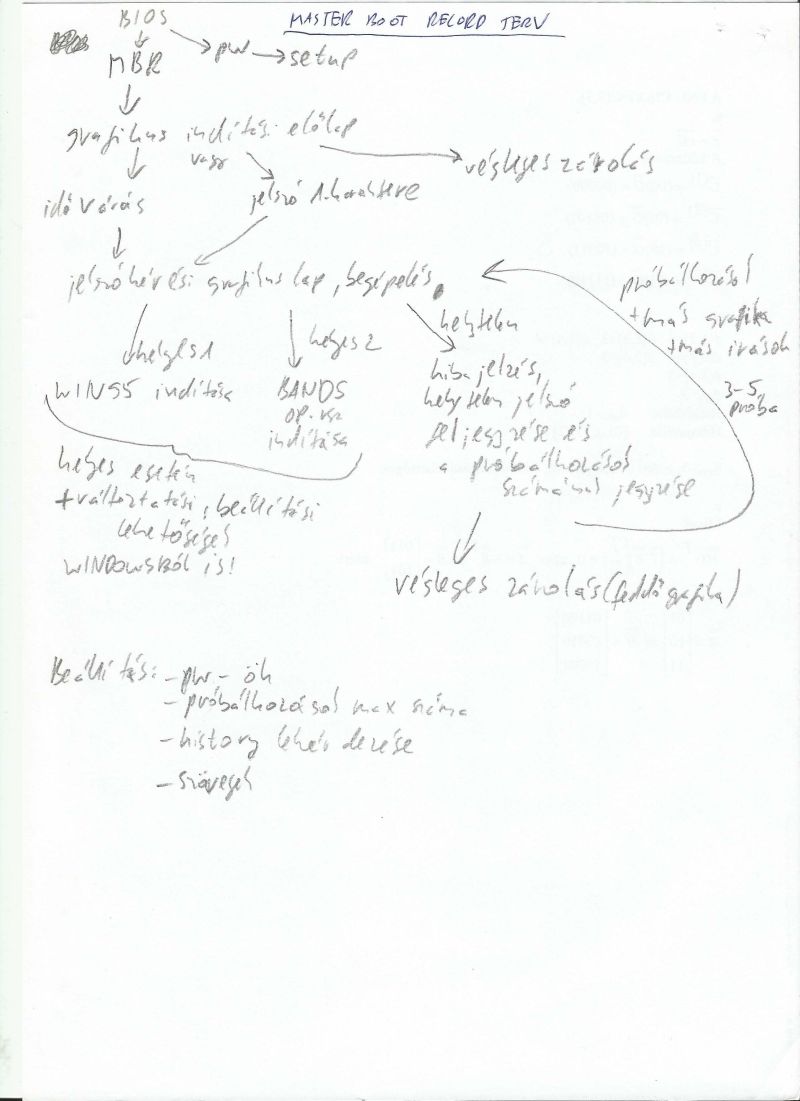 MASTER BOOT RECORD TERV
BIOS
MBR
pw
setup
grafikus indítási előlap
vagy
végleges zárolás
idő várás
jelszó 1. karaktere
jelszókérési grafikus lap, begépelés,
próbálkozások
+más grafika
+más írások
3-5
próba
helyes 1
helyes 2
helytelen
WIN95 indítása
BANOS
op. rsz
indítása
hiba jelzés,
helytelen jelszó
feljegyzése és
a próbálkozások
számának jegyzése
helyes esetén
+változtatási, beállítási
lehetőségek
WINDOWSBÓL is!
végleges zárolás (fedőgrafika)
Beállítás: - pw - ök
- próbálkozások max száma
- history lekérdezése
- szövegek